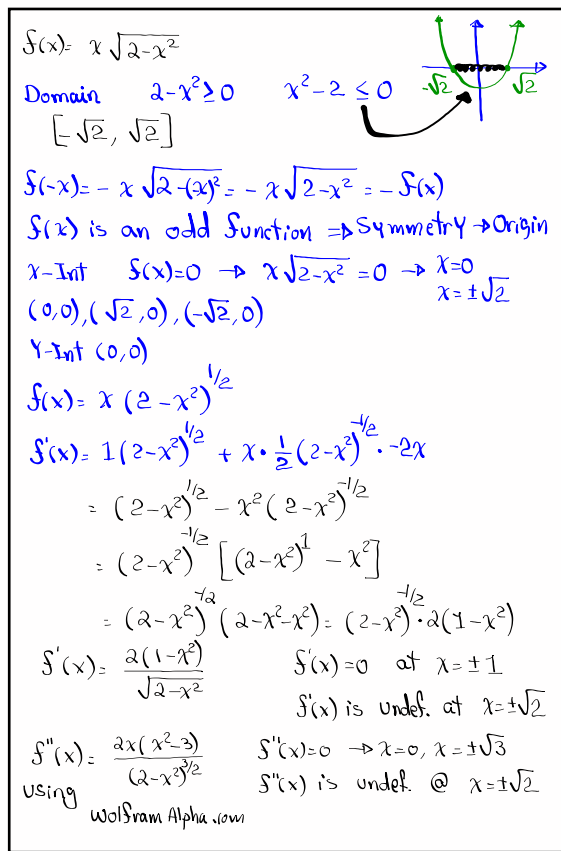 f(x)= x √(2-x²)
-√2 √2
Domain 2-x²≥0 x²-2 ≤ 0
[-√2, √2]
f(-x)= - x √(2-(x)²) = - x √(2-x²) = - f(x)
f(x) is an odd function ⇒ Symmetry → Origin
x-Int f(x)=0 → x√(2-x²) = 0 → x=0
x=±√2
(0,0),(√2,0),(-√2,0)
Y-Int (0,0)
f(x)= x (2-x²)^1/2
f'(x)= 1(2-x²)^1/2 + x·1/2(2-x²)^-1/2 · -2x
= (2-x²)^1/2 - x²(2-x²)^-1/2
= (2-x²)^-1/2 [(2-x²)^1 - x²]
= (2-x²)^-1/2 (2-x²-x²) = (2-x²)^-1/2 · 2(1-x²)
f'(x)= 2(1-x²)/√(2-x²) f'(x)=0 at x=±1
f'(x) is undef. at x=±√2
f''(x)= 2x(x²-3)/(2-x²)^3/2 f''(x)=0 → x=0, x=±√3
f''(x) is undef. @ x=±√2
using
Wolfram Alpha.com